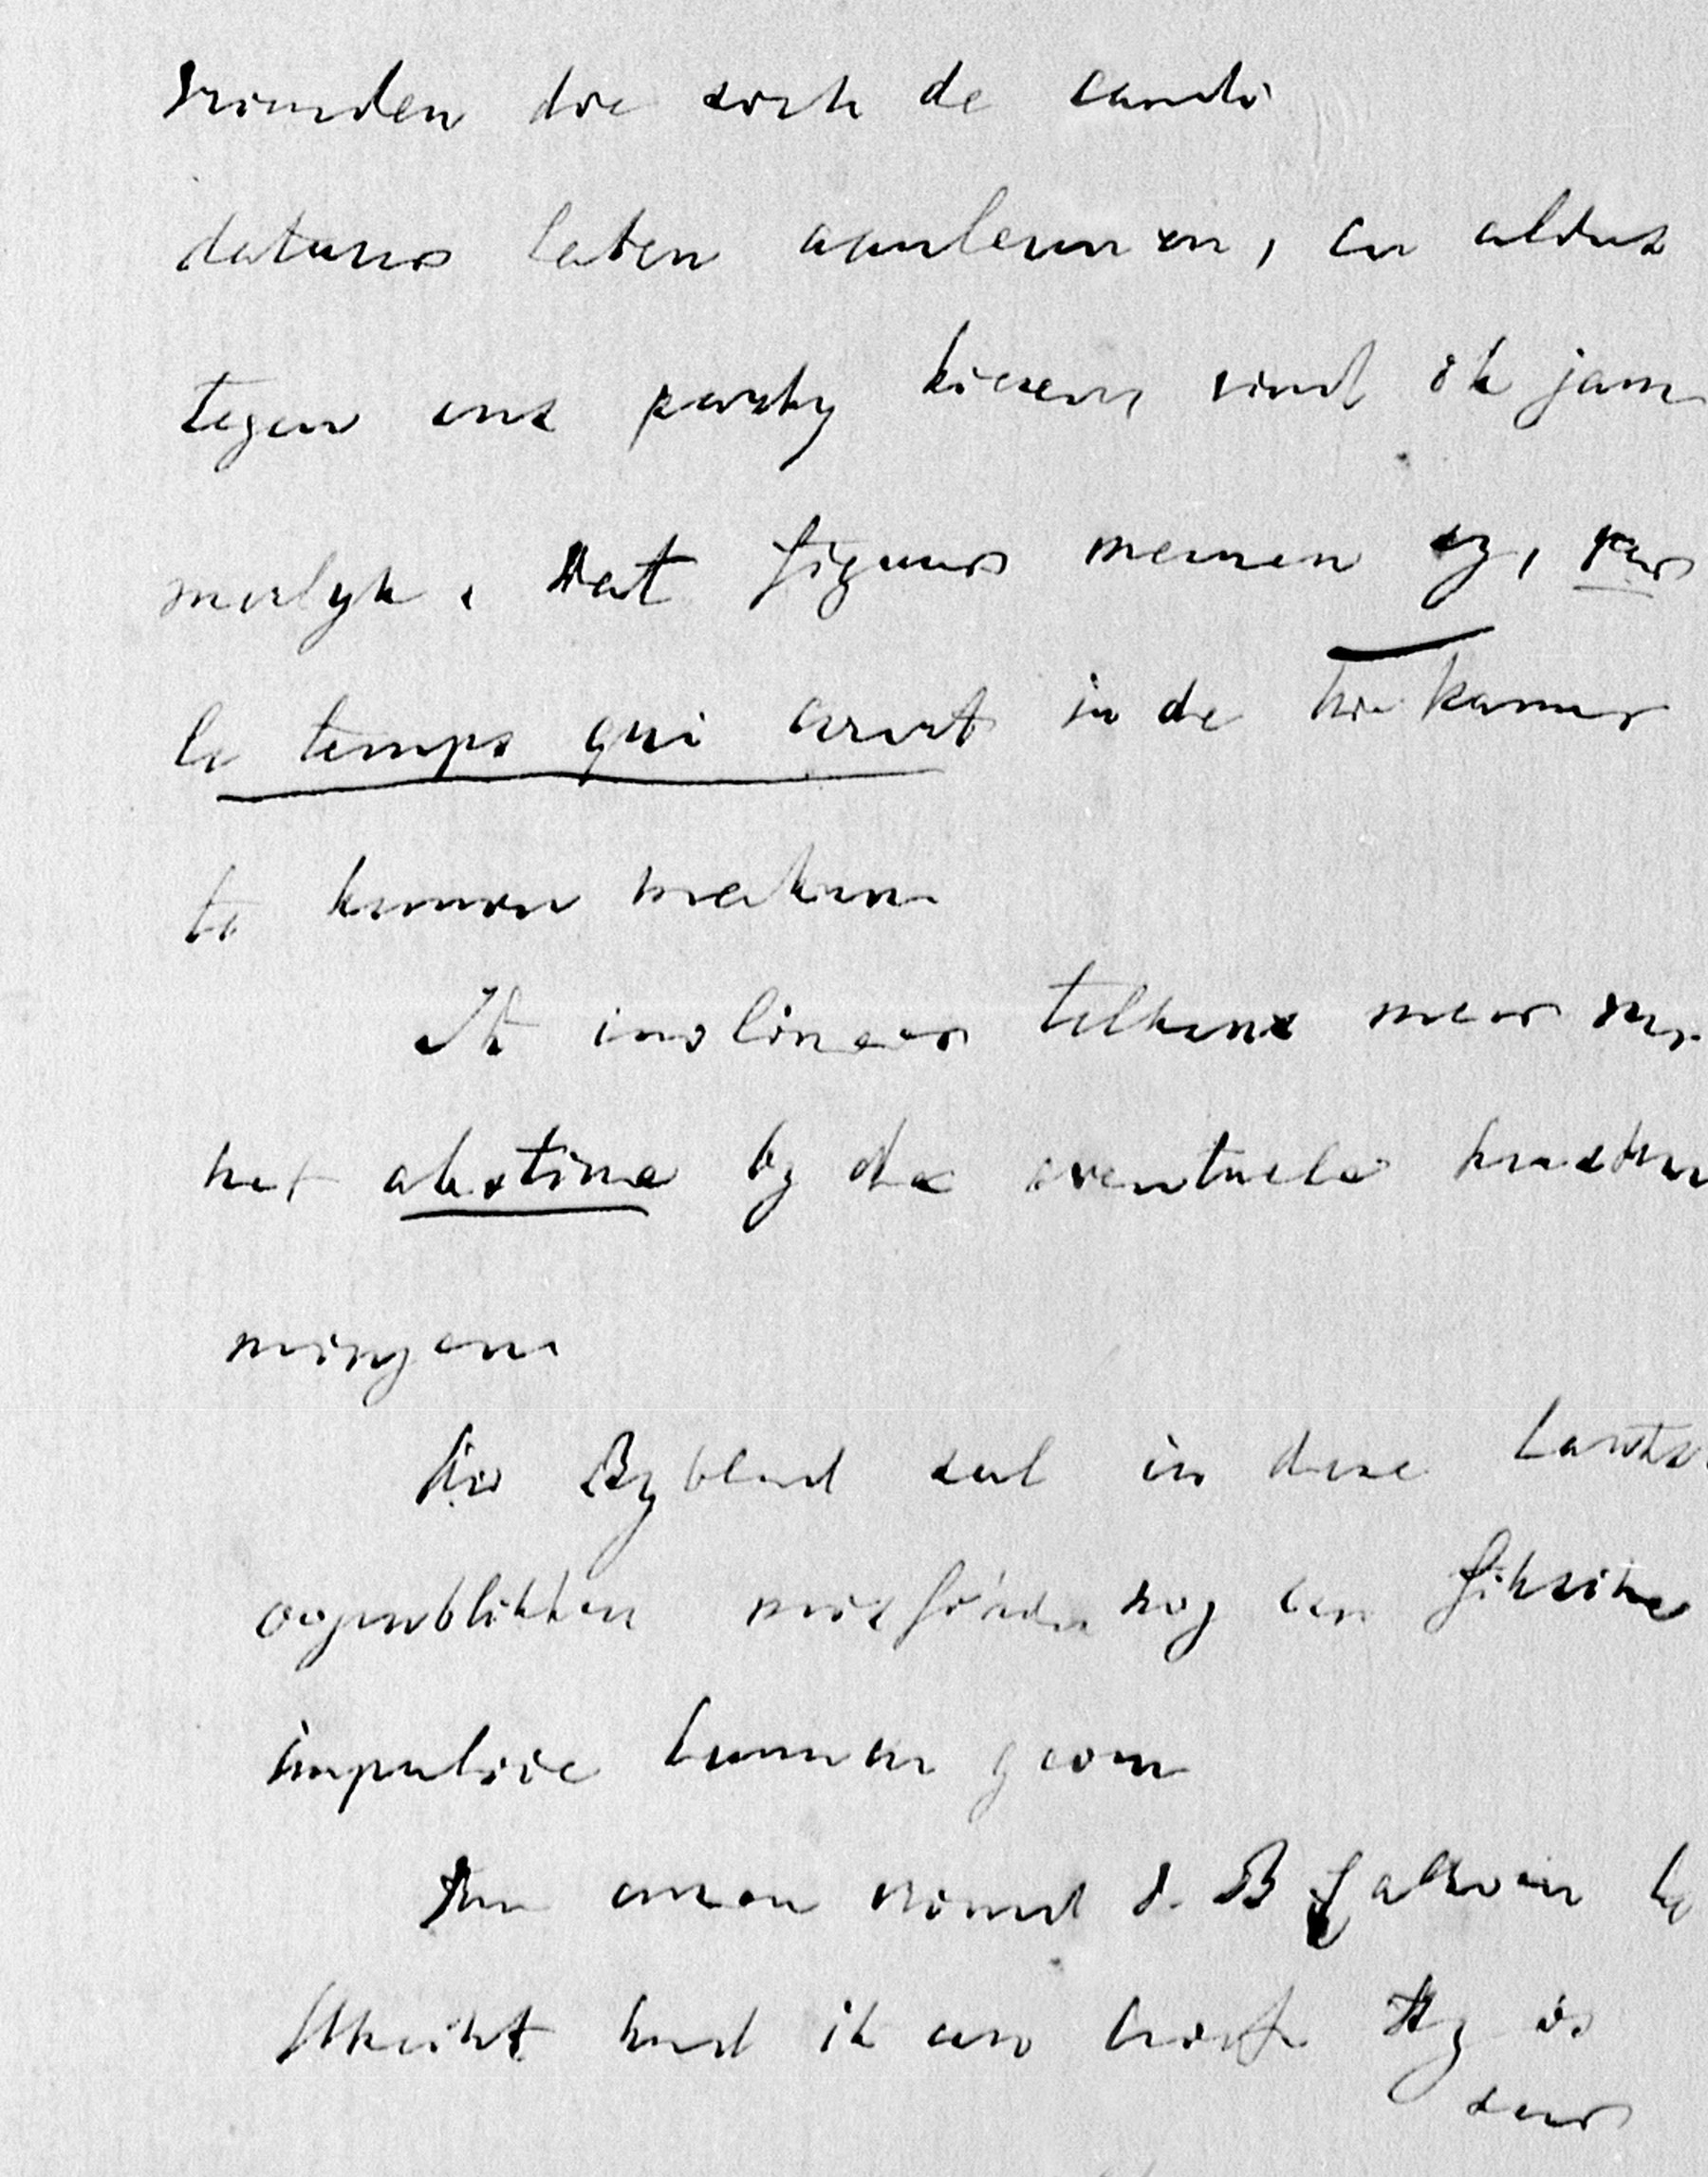 vrienden die zich de candi
datuur laten aanleunen, en aldus
tegen ons party kiezen, vind ik jam
merlyk. Dat figuur meenen zy, par
le temps qui court in de kamer
te kunnen maken
Ik inclineer telkens meer voor
het abstine by de eventuele
De Bylandt zal in deze
oogenblikken misschien nog een
impulsie kunnen geven
onzen vriend d. B
Utrecht had ik een brief. Hy is
zeer